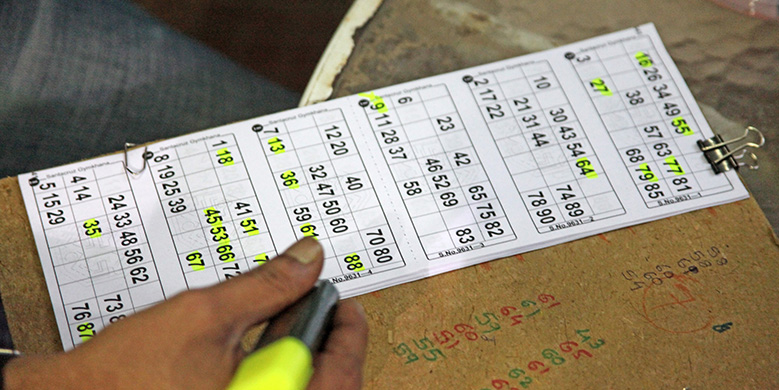 Santacruz Gymkhana
5 4
15 14
29 24
35 33
48
56
62
76 73
87
Santacruz Gymkhana
8 1
19 18
25
39
45 41
53 51
67 66
72
Santacruz Gymkhana
7
13 12
20
36 32
47 40
59 50
61 60
70
88 80
S.No.9631-4
Santacruz Gymkhana
9 6
11
28 23
37
46 42
58 52
69 65
75
83 82
S.No.9631-3
Santacruz Gymkhana
2
17 10
22 21
31 30
44 43
54
64
78 74
90 89
S.No.9631-2
Santacruz Gymkhana
3
16
27 26
38 34
49
57 55
68 63
79 77
85 81
S.No.9631-1
61
64
43